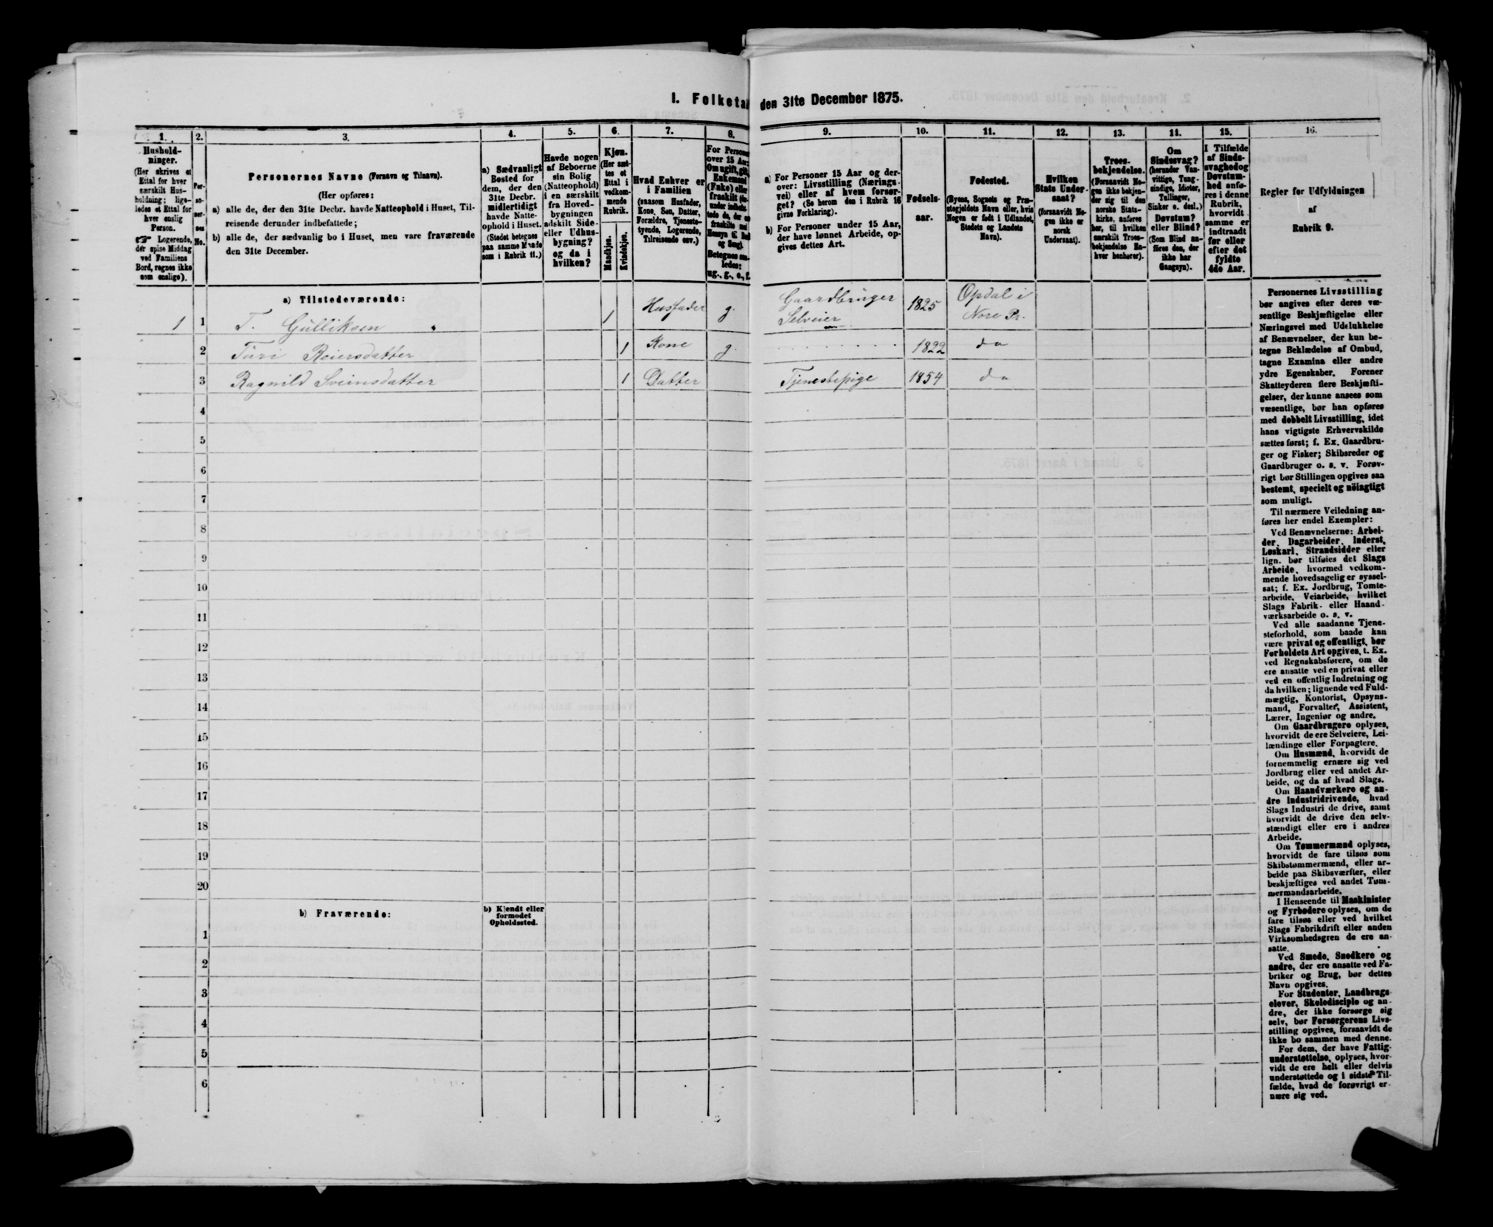 I. Folketal den 31te December 1875.
1.
Hushold-
ninger.
(Her skrives et
Ettal for hver
særskilt Hus-
holdning; lige-
ledes et Ettal for
hver enslig
Person.
☞ Logerende,
der spise Middag
ved Familiens
Bord, regnes ikke
som enslige).
2.
Per-
so-
ner-
nes
No.
3.
Personernes Navne (Fornavn og Tilnavn).
(Her opføres:
a) alle de, der den 31te Decbr. havde Natteophold i Huset, Til-
reisende derunder indbefattede;
b) alle de, der sædvanlig bo i Huset, men vare fraværende
den 31te December.
4.
a) Sædvanligt
Bosted for
dem, der den
31te Decbr.
midlertidigt
havde Natte-
ophold i Huset.
(Stedet betegnes
paa samme Maade
som i Rubrik 11.)
5.
Havde nogen
af Beboerne
sin Bolig
(Natteophold)
i en særskilt
fra Hoved-
bygningen
adskilt Side-
eller Udhus-
bygning?
og da i
hvilken?
6.
Kjøn.
(Her sæt-
tes et
Ettal i
vedkom-
mende
Rubrik.
Mandkjøn.
Kvindekjøn.
7.
Hvad Enhver er
i Familien
(saasom Husfader,
Kone, Søn, Datter,
Forældre, Tjeneste-
tyende, Logerende,
Tilreisende osv.)
8.
For Personer
over 15 Aar:
Om ugift, gift,
Enkemand
(Enke) eller
fraskilt
9.
a) For Personer 15 Aar og der-
over: Livsstilling (Nærings-
vei) eller af hvem forsør-
get? (Se herom den i Rubrik 16
givne Forklaring).
b) For Personer under 15 Aar,
der have lønnet Arbeide, op-
gives dettes Art.
10.
Fødsels-
aar.
11.
Fødested.
(Byens, Sognets og Præ-
stegjeldets Navn eller, hvis
Nogen er født i Udlandet,
Stedets og Landets
Navn).
12.
Hvilken
Stats Under-
saat?
(forsaavidt No-
gen ikke er
norsk
Undersaat).
13.
Troes-
bekjendelse.
(Forsaavidt No-
gen ikke bekjen-
der sig til den
norske Stats-
kirke, anføres
her, til hvilken
særskilt Troes-
bekjendelse En-
hver henhører).
14.
Om
Sindssvag?
(herunder Van-
vittige, Tung-
sindige, Idioter,
Sinker o. desl.)
Døvstum?
eller Blind?
(Som Blind an-
føres den, der
ikke har
Gangsyn).
15.
I Tilfælde
af Sinds-
svaghed og
Døvstum-
hed anfø-
res i denne
Rubrik,
hvorvidt
samme er
indtraadt
før eller
efter det
fyldte
4de Aar.
16.
Regler for Udfyldningen
af
Rubrik 9.
a) Tilstedeværende:
1 1 T. Gulliksen 1 Husfader g. Gaardbruger Selveier 1825 Opdal i Nore Pr.
2 Turi Reiersdatter 1 Kone g. 1822 do
3 Ragnild Sveinsdatter 1 Datter Tjenestepige 1854 do
4
5
6
7
8
9
10
11
12
13
14
15
16
17
18
19
20
b) Fraværende:
b) Kjendt eller
formodet
Opholdssted.
1
2
3
4
5
6
Personernes Livsstilling
bør angives efter deres væ-
sentlige Beskjæftigelse eller
Næringsvei med Udelukkelse
af Benævnelser, der kun be-
tegne Beklædelse af Ombud,
tagne Examina eller andre
ydre Egenskaber. Forener
Skatteyderen flere Beskjæfti-
gelser, der kunne ansees som
væsentlige, bør han opføres
med dobbelt Livsstilling, idet
hans vigtigste Erhvervskilde
sættes først; f. Ex. Gaardbru-
ger og Fisker; Skibsreder og
Gaardbruger o. s. v. Forøv-
rigt bør Stillingen opgives saa
bestemt, specielt og nöiagtigt
som muligt.
Til nærmere Veiledning an-
føres her endel Exempler:
Ved Benævnelserne: Arbei-
der, Dagarbeider, Inderst,
Løskarl, Strandsidder eller
lign. bør tilføies det Slags
Arbeide, hvormed vedkom-
mende hovedsagelig er syssel-
sat; f. Ex. Jordbrug, Tomte-
arbeide, Veiarbeide, hvilket
Slags Fabrik- eller Haand-
værksarbeide o. s. v.
Ved alle saadanne Tjene-
steforhold, som baade kan
være privat og offentligt, bør
Forholdets Art opgives, t. Ex.
ved Regnskabsførere, om de
ere ansatte ved en privat eller
ved en offentlig Indretning og
da hvilken; lignende ved Fuld-
mægtig, Kontorist, Opsyns-
mand, Forvalter, Assistent,
Lærer, Ingeniør og andre.
Om Gaardbrugere oplyses,
hvorvidt de ere Selveiere, Lei-
lændinge eller Forpagtere.
Om Husmænd, hvorvidt de
fornemmelig ernære sig ved
Jordbrug eller ved andet Ar-
beide, og da af hvad Slags.
Om Haandværkere og an-
dre Industridrivende, hvad
Slags Industri de drive, samt
hvorvidt de drive den selv-
stændigt eller ere i andres
Arbeide.
Om Tømmermænd oplyses,
hvorvidt de fare tilsøs som
Skibstømmermænd, eller ar-
beide paa Skibsværfter, eller
beskjæftiges ved andet Tøm-
mermandsarbeide.
I Henseende til Maskinister
og Fyrbødere oplyses, om de
fare tilsøs eller ved hvilket
Slags Fabrikdrift eller anden
Virksomhedsgren de ere an-
satte.
Ved Smede, Snedkere og
andre, der ere ansatte ved Fa-
briker og Brug, bør dettes
Navn opgives.
For Studenter, Landbrugs-
elever, Skoledisciple og an-
dre, der ikke forsørge sig
selv, bør Forsørgerens Livs-
stilling opgives, forsaavidt de
ikke bo sammen med denne.
For dem, der have Fattig-
understøttelse, oplyses, hvor-
vidt de ere helt eller delvis
understøttede og i sidste Til-
fælde, hvad de forøvrigt er-
nære sig ved.